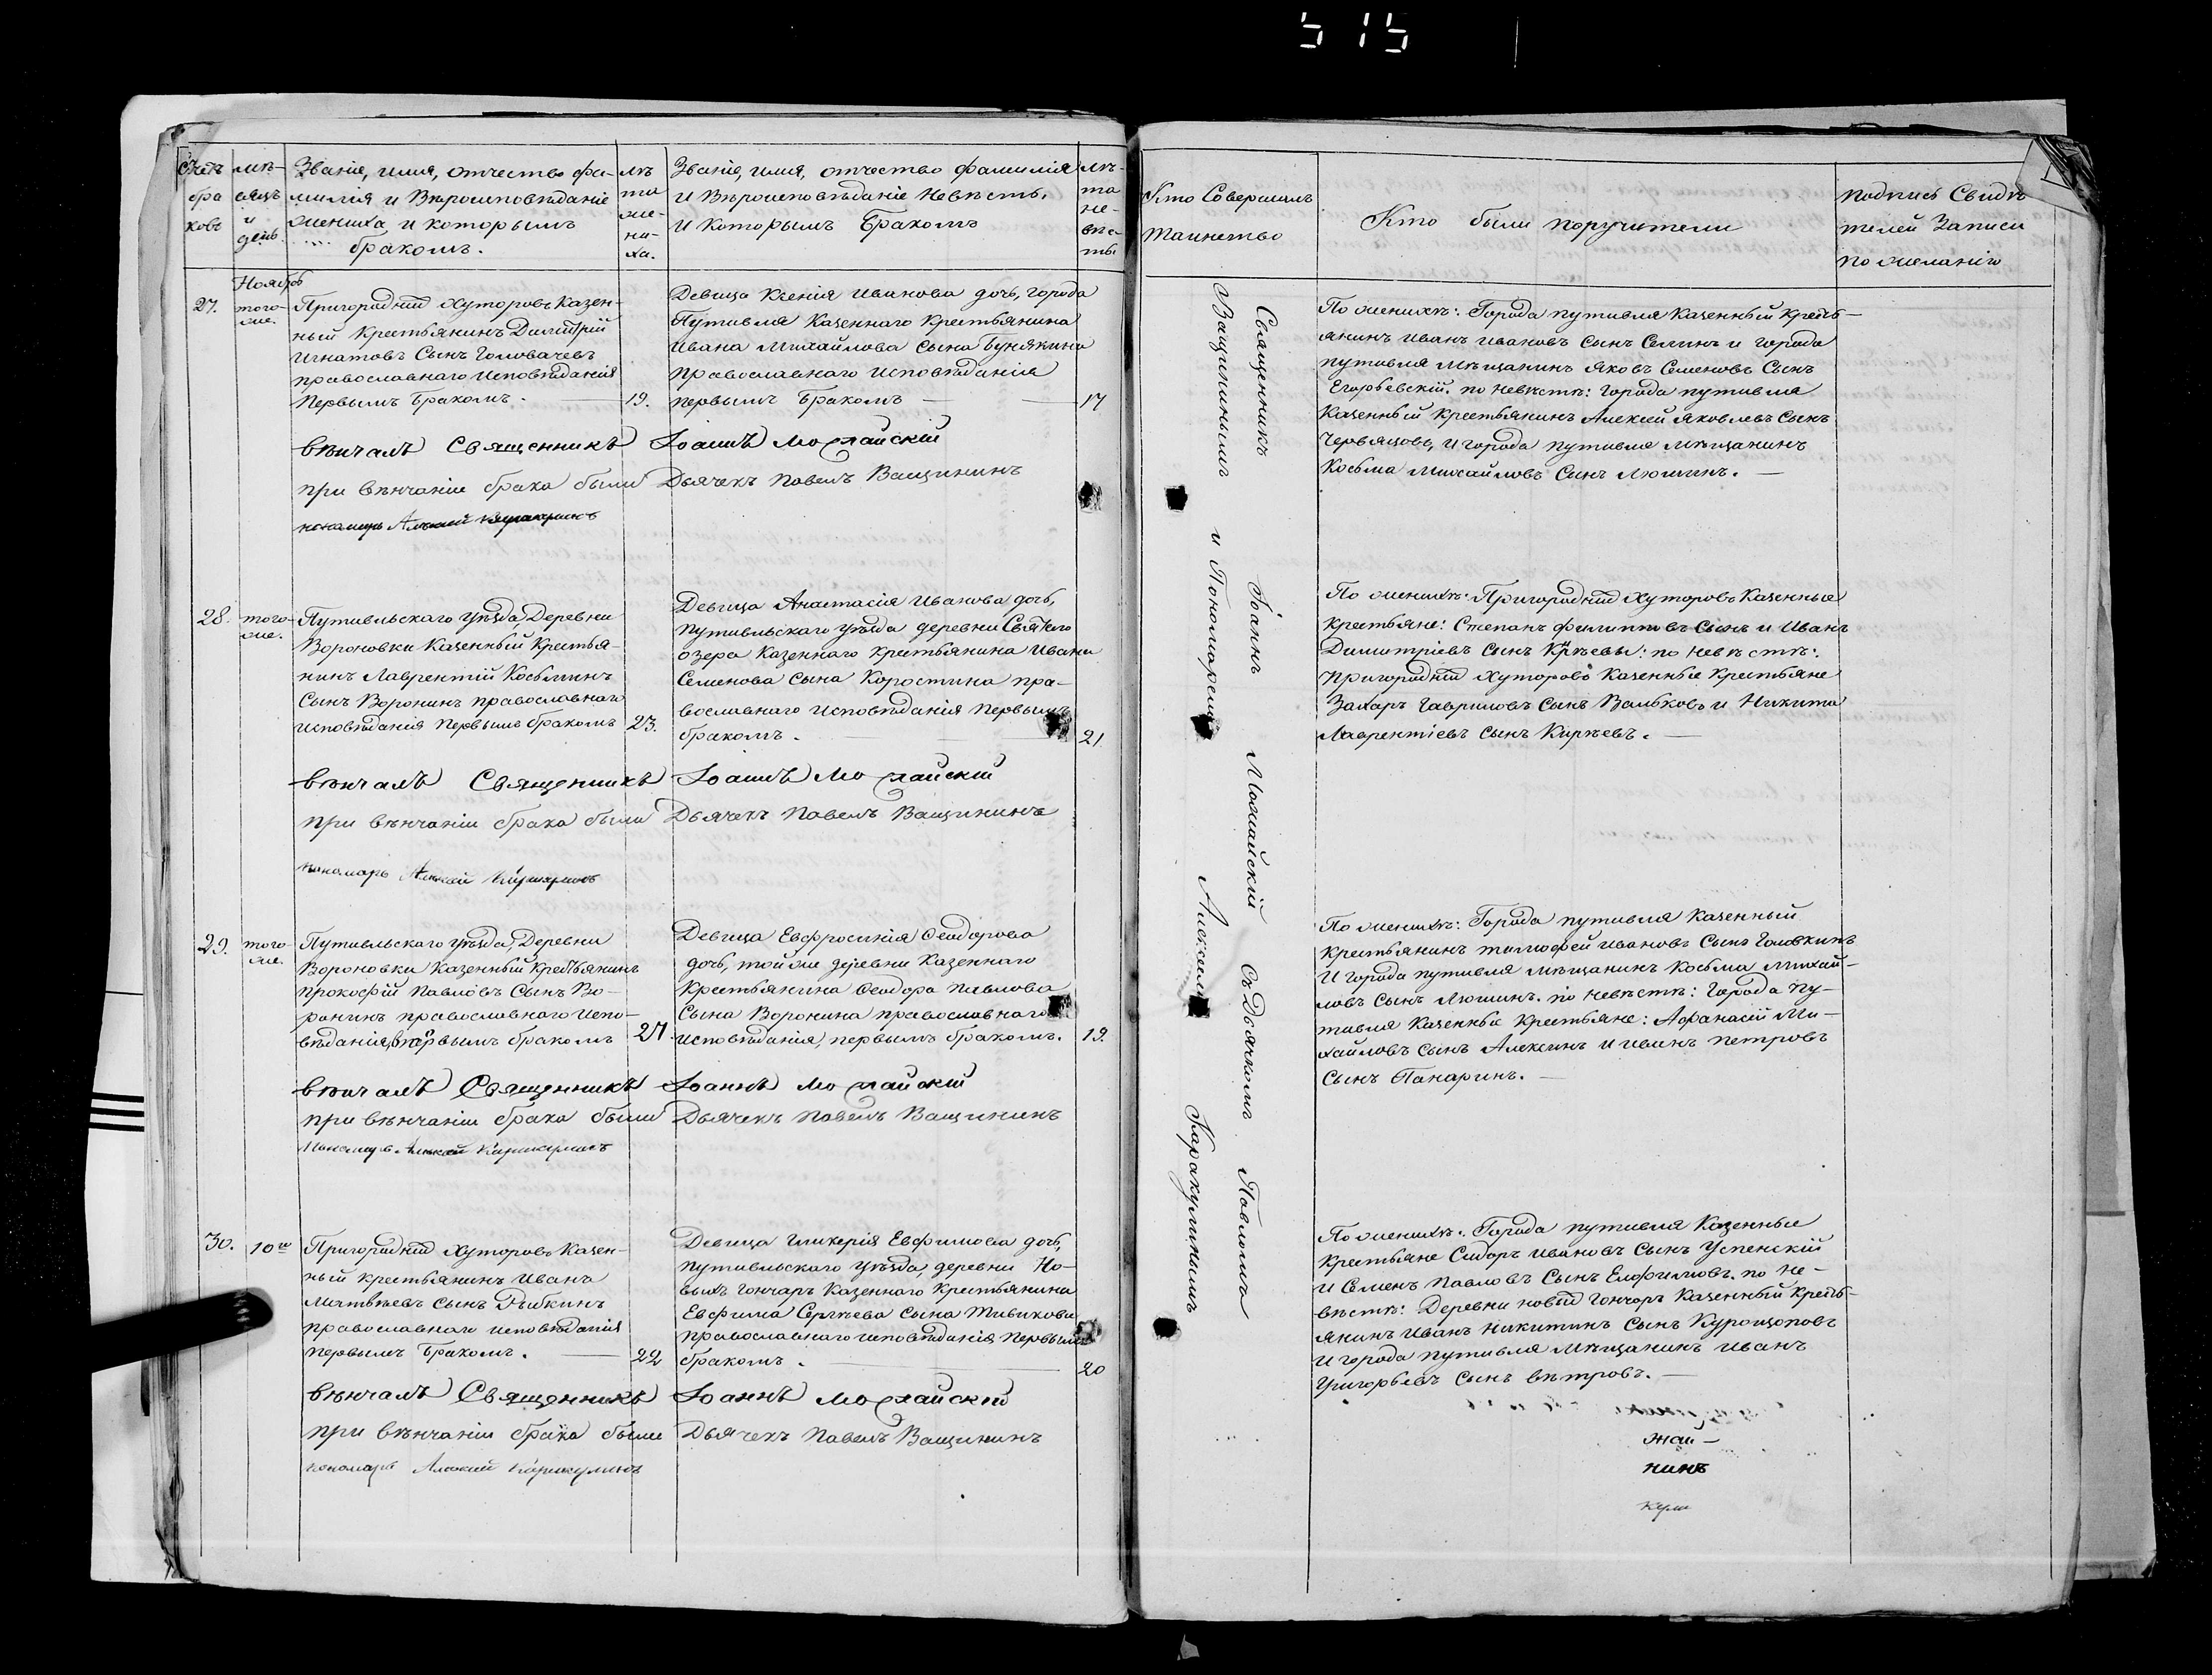 515
Счетъ
бра
ковъ
мѣ-
сяцъ
и
день.
Званіе, имя, отчество фа-
милія и Вѣроисповѣданіе
жениха и которымъ
бракомъ.
лѣ
та
же-
ни-
ха.
Званіе, имя, отчество фамилія
и Вѣроисповѣданіе Невѣсты.
и Которымъ Бракомъ
лѣ-
та
не-
вѣс-
ты.
Ноябрь
27.
того-
же.
Пригородныхъ Хуторовъ Казен-
ный Крестьянинъ Димитрій
Игнатовъ Сынъ Головачевъ
православнаго Исповѣданія
Первымъ Бракомъ.
19.
Девица Ксенія Иванова дочь, города
Путивля Казеннаго Крестьянина
Ивана Михайлова Сына Бунякина
православнаго Исповѣданія
первымъ Бракомъ
17
вѣнчалъ Священникъ Іоаннъ Можайскій
при вѣнчаніи брака были Дьячекъ Павелъ Ващининъ
пономарь Алексей Каракулинъ
28.
того-
же.
Путивльскаго Уѣзда, Деревни
Вороновки Казенный Крестья-
нинъ Лаврентій Косьминъ
Сынъ Воронинъ православнаго
Исповѣданія Первымъ бракомъ
23.
Девица Анастасія Иванова дочь,
путивльскаго уѣзда деревни Святого
озера Казеннаго Крестьянина Ивана
Семенова Сына Коростина пра-
вославнаго Исповѣданія Первымъ
бракомъ.
21
вѣнчалъ Священникъ Іоаннъ Можайскій
при вѣнчаніи брака были Дьячекъ Павелъ Ващининъ
пономарь Алексей Каракулинъ
29.
того-
же.
Путивльскаго уѣзда, Деревни
Вороновки Казенный Крестьянинъ
Прокофій Павловъ Сынъ Во-
ронинъ православнаго Испо-
вѣданія, первымъ бракомъ
27.
Девица Евфросинія Феодорова
дочь, той же деревни Казеннаго
Крестьянина Феодора Павлова
Сына Воронина православнаго
исповѣданія, первымъ бракомъ.
19.
вѣнчалъ Священникъ Іоаннъ Можайскій
при вѣнчаніи брака были Дьячекъ Павелъ Ващининъ
Пономарь Алексей Каракулинъ
30.
10го
Пригородныхъ Хуторовъ Казен-
ный крестьянинъ Иванъ
Матвѣевъ Сынъ Рыбкинъ
православнаго исповѣданія
Первымъ Бракомъ.
22
Девица Гликерія Евфимова дочь,
путивльскаго уѣзда, деревни Но-
выхъ Гончаръ Казеннаго Крестьянина
Евфима Сергѣева Сына Тивикова
православнаго исповѣданія Первымъ
бракомъ.
20
вѣнчалъ Священникъ Іоаннъ Можайскій
при вѣнчаніи брака были Дьячекъ Павелъ Ващининъ
пономарь Алексей Каракулинъ
Кто Совершилъ
Таинство
Кто были поручители
Подпись Свидѣ
телей Записи
по желанію
Священникъ Іоаннъ Можайскій Съ Дьячкомъ Павломъ
Ващининымъ и Пономаремъ Алексеемъ Каракулинымъ
По женихѣ: Города путивля Казенный Кресть-
янинъ Иванъ Ивановъ Сынъ Селинъ и города
путивля Мѣщанинъ Яковъ Семеновъ Сынъ
Егорьевскій. по невѣстѣ: города путивля
Казенный Крестьянинъ Алексѣй Яковлевъ Сынъ
Червяцовъ, и города путивля мѣщанинъ
Косьма Михайловъ Сынъ Люшинъ.
По женихѣ: Пригородныхъ Хуторовъ Казенные
Крестьяне: Степанъ Филиповъ Сынъ и Иванъ
Димитріевъ Сынъ Кирѣевы: по невѣстѣ:
пригородныхъ хуторовъ Казенные Крестьяне
Захаръ Гавриловъ Сынъ Вальковъ и Никита
Лаврентіевъ Сынъ Кирѣевъ.
По женихѣ: Города путивля Казенный
Крестьянинъ Тимофей Ивановъ Сынъ Головкинъ
И города путивля мѣщанинъ Косьма Михай-
ловъ Сынъ Люшинъ. по невѣстѣ: Города Пу-
тивля Казенные Крестьяне: Афанасій Ми-
хайловъ Сынъ Алехинъ и Иванъ Петровъ
Сынъ Панаринъ.
По женихѣ: Города путивля Казенные
Крестьяне Сидоръ Ивановъ Сынъ Успенскій
и Семенъ Павловъ Сынъ Елофимовъ. по не-
вѣстѣ: Деревни новыхъ Гончаръ Казенный Кресть-
янинъ Иванъ Никитинъ Сынъ Курощоповъ
И города путивля Мѣщанинъ Иванъ
Григорьевъ Сынъ вѣтровъ.
жай-
нинъ
кули